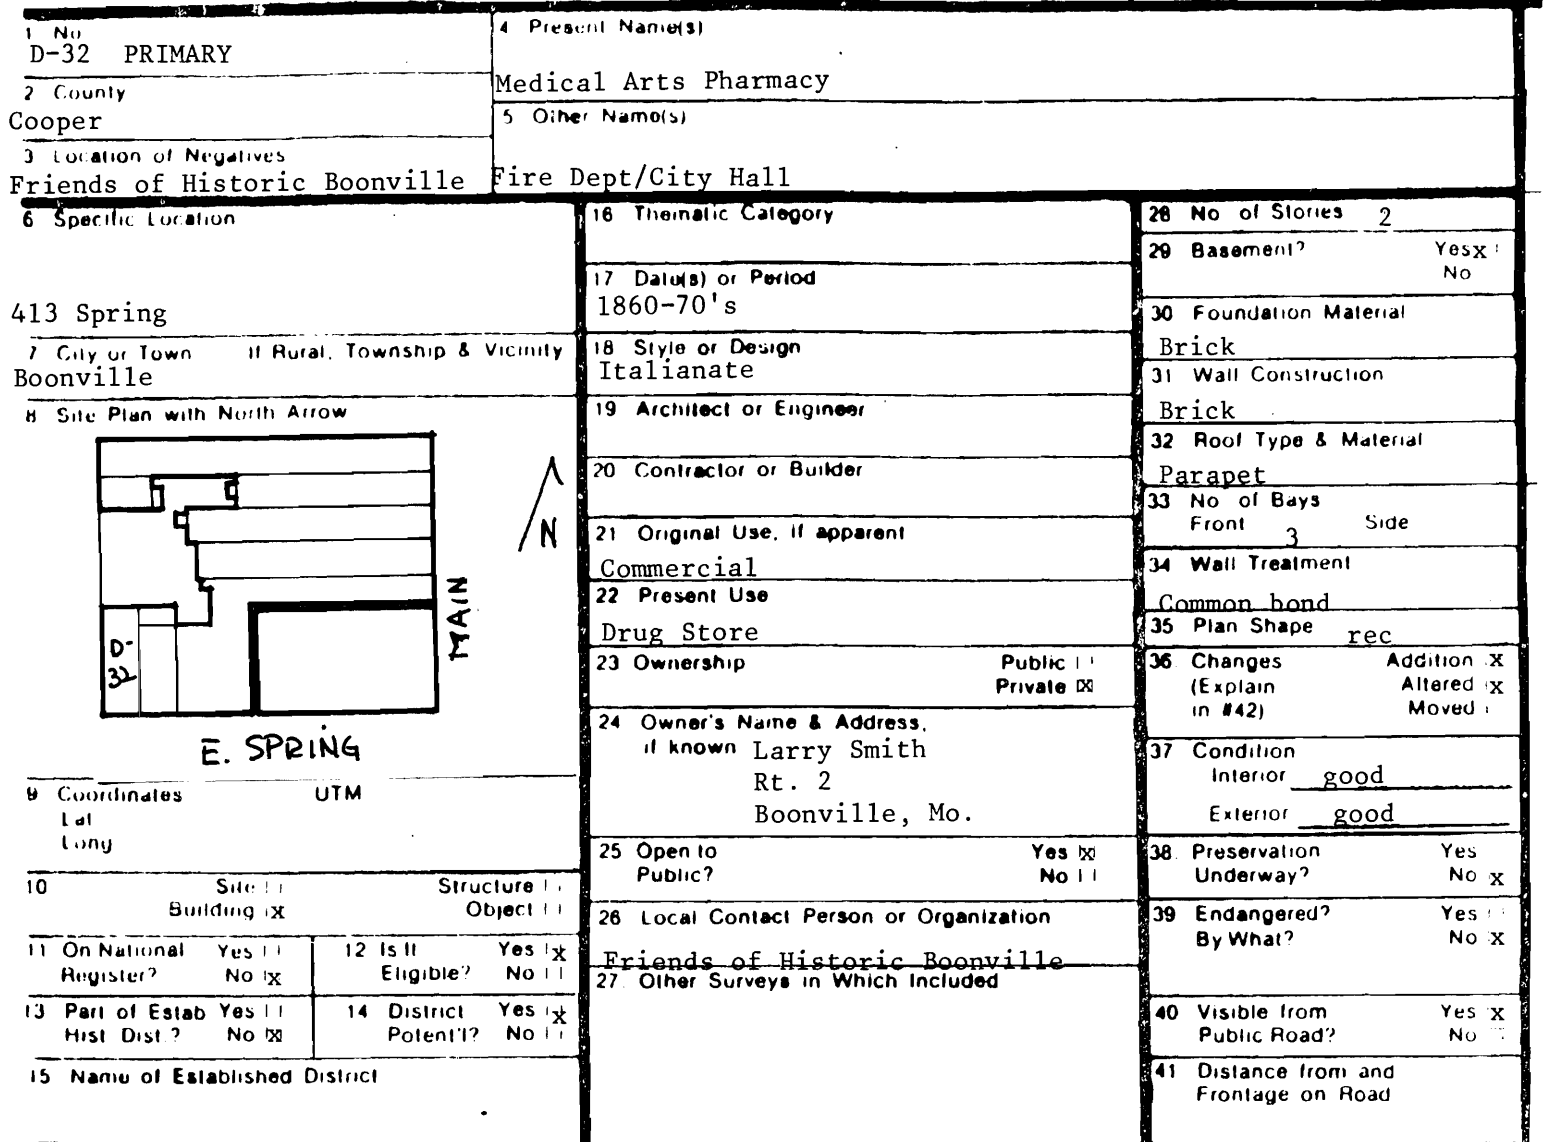 1 No
D-32 PRIMARY
2 County
Cooper
3 Location of Negatives
Friends of Historic Boonville
4 Present Name(s)
Medical Arts Pharmacy
5 Other Name(s)
Fire Dept/City Hall
6 Specific Location
413 Spring
7 City or Town If Rural, Township & Vicinity
Boonville
8 Site Plan with North Arrow
N
MAIN
D-
32
E. SPRING
9 Coordinates UTM
Lat
Long
10 Site Structure
Building x Object
11 On National Yes
Register? No x
12 Is It Yes x
Eligible? No
13 Part of Estab Yes
Hist Dist.? No x
14 District Yes x
Potent'l? No
15 Name of Established District
16 Thematic Category
17 Date(s) or Period
1860-70's
18 Style or Design
Italianate
19 Architect or Engineer
20 Contractor or Builder
21 Original Use, if apparent
Commercial
22 Present Use
Drug Store
23 Ownership Public
Private x
24 Owner's Name & Address,
if known Larry Smith
Rt. 2
Boonville, Mo.
25 Open to Yes x
Public? No
26 Local Contact Person or Organization
Friends of Historic Boonville
27. Other Surveys in Which Included
28 No of Stories 2
29 Basement? Yes x
No
30 Foundation Material
Brick
31 Wall Construction
Brick
32 Roof Type & Material
Parapet
33 No of Bays
Front 3 Side
34 Wall Treatment
Common bond
35 Plan Shape rec
36 Changes Addition x
(Explain Altered x
in #42) Moved
37 Condition
Interior good
Exterior good
38. Preservation Yes
Underway? No x
39 Endangered? Yes
By What? No x
40 Visible from Yes x
Public Road? No
41 Distance from and
Frontage on Road